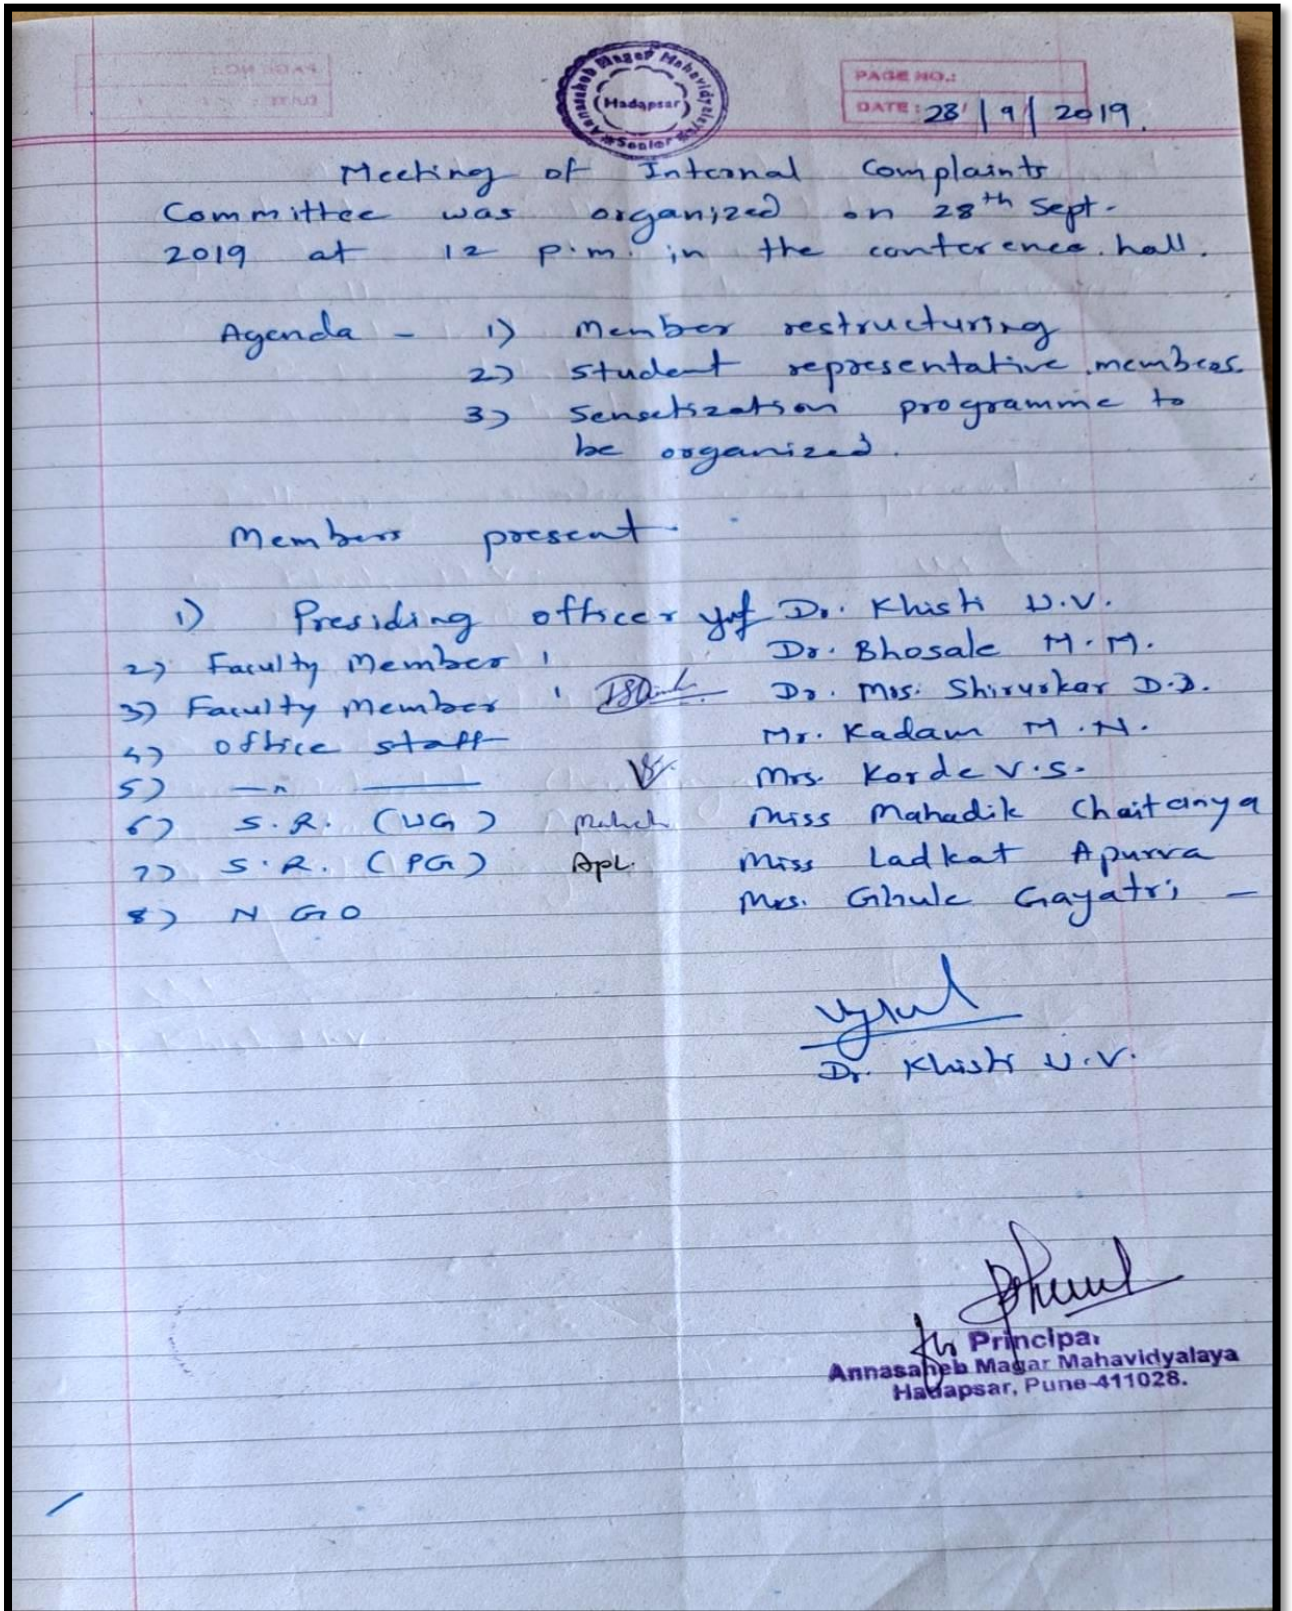 Annasaheb Magar Mahavidyalaya
Hadapsar
Senior
PAGE NO.:
DATE: 28/9/2019.
Meeting of Internal Complaints
Committee was organized on 28th Sept.
2019 at 12 p.m. in the conference hall.
Agenda - 1) Member restructuring
2) Student representative members.
3) Sensetization programme to
be organized.
Members present
1) Presiding officer Dr. Khisti U.V.
2) Faculty Member Dr. Bhosale M.M.
3) Faculty Member Dr. Mrs. Shirurkar D.D.
4) Office staff Mr. Kadam M.N.
5) —"— Mrs. Korde V.S.
6) S.R. (UG) Miss Mahadik Chaitanya
7) S.R. (PG) Apl. Miss Ladkat Apurva
8) NGO Mrs. Ghule Gayatri —
Dr. Khisti U.V.
for Principal
Annasaheb Magar Mahavidyalaya
Hadapsar, Pune-411028.